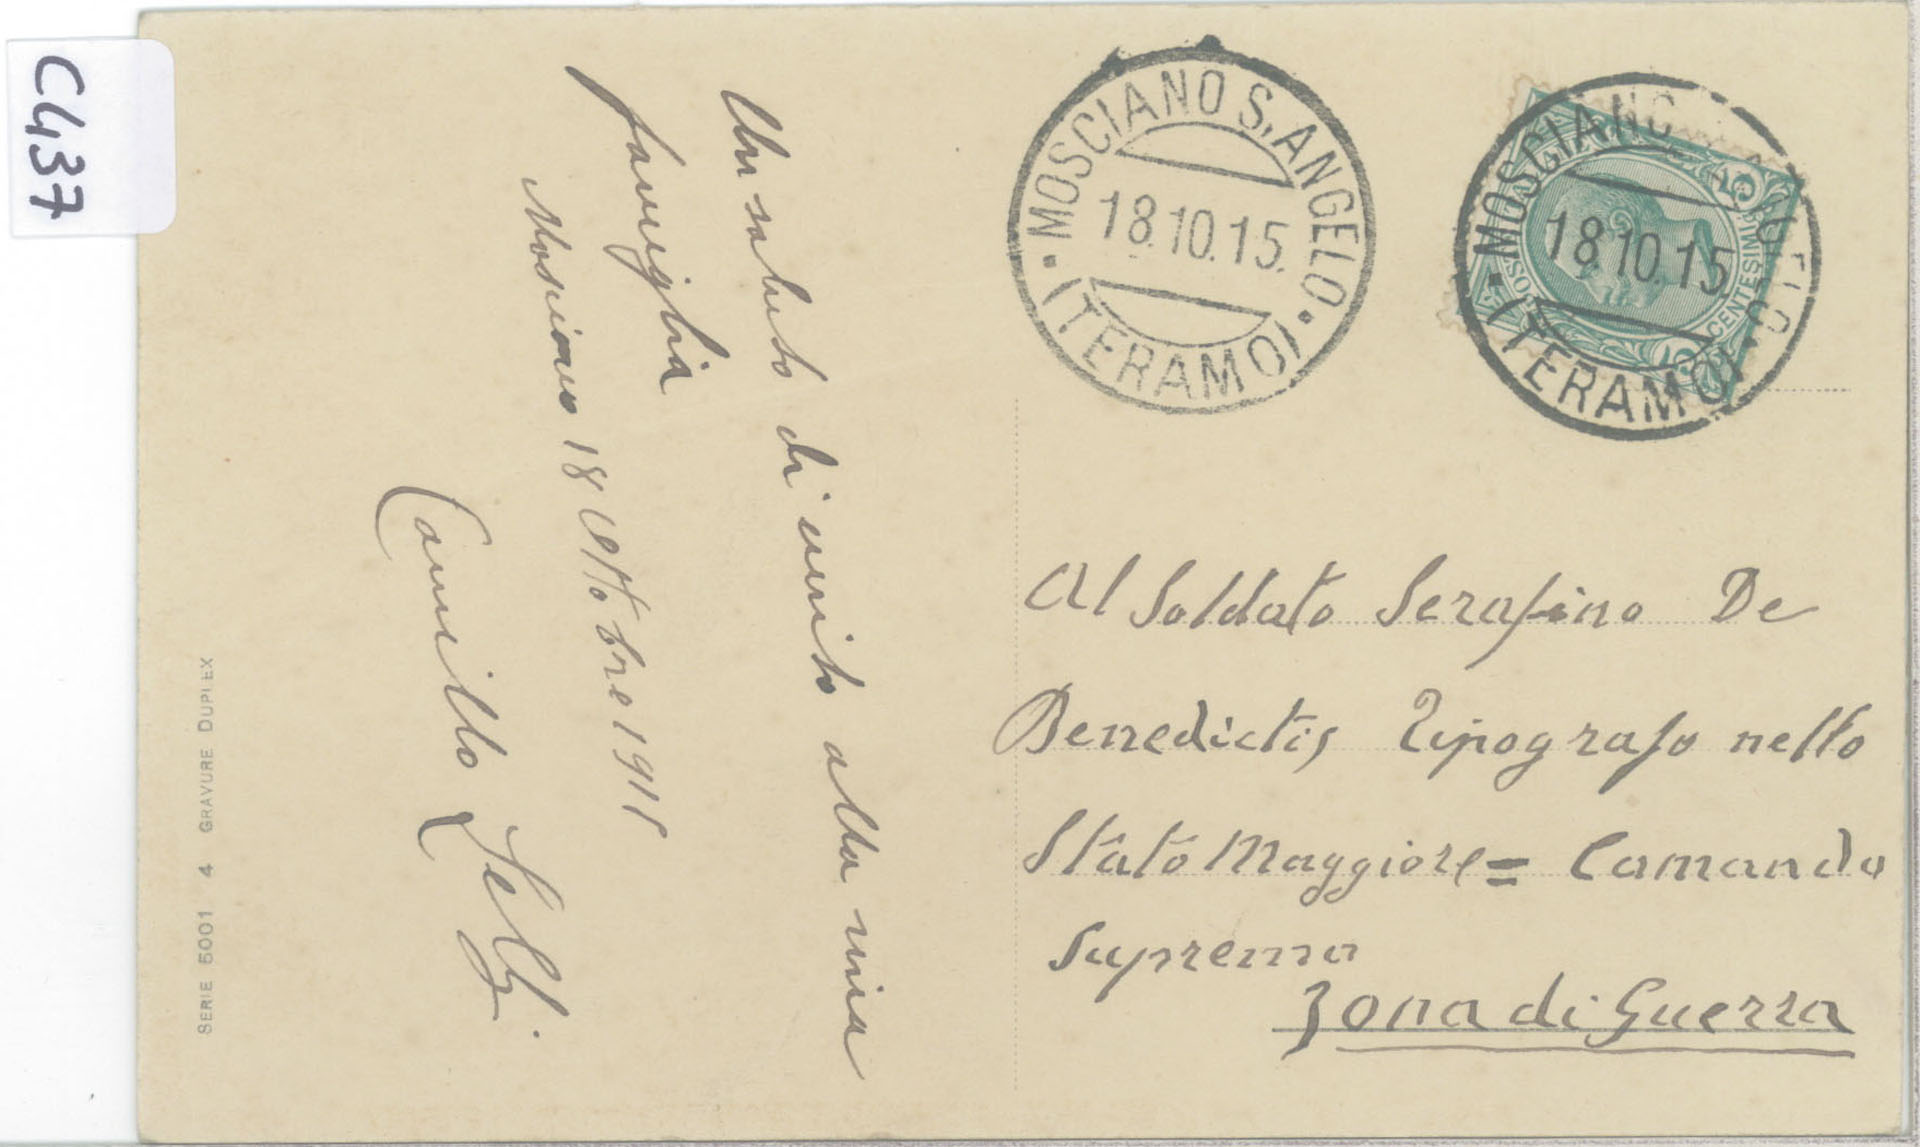 C437
Un saluto di unito alla mia
famiglia
Mosciano 18 Ottobre 1915
Camillo
SERIE 5001 4 GRAVURE DUPLEX
MOSCIANO S. ANGELO
18.10.15.
(TERAMO)
MOSCIANO S. ANGELO
18.10.15.
(TERAMO)
CENTESIMI
Al Soldato Serafino De
Benedictis Tipografo nello
Stato Maggiore = Comando
Supremo
Zona di Guerra